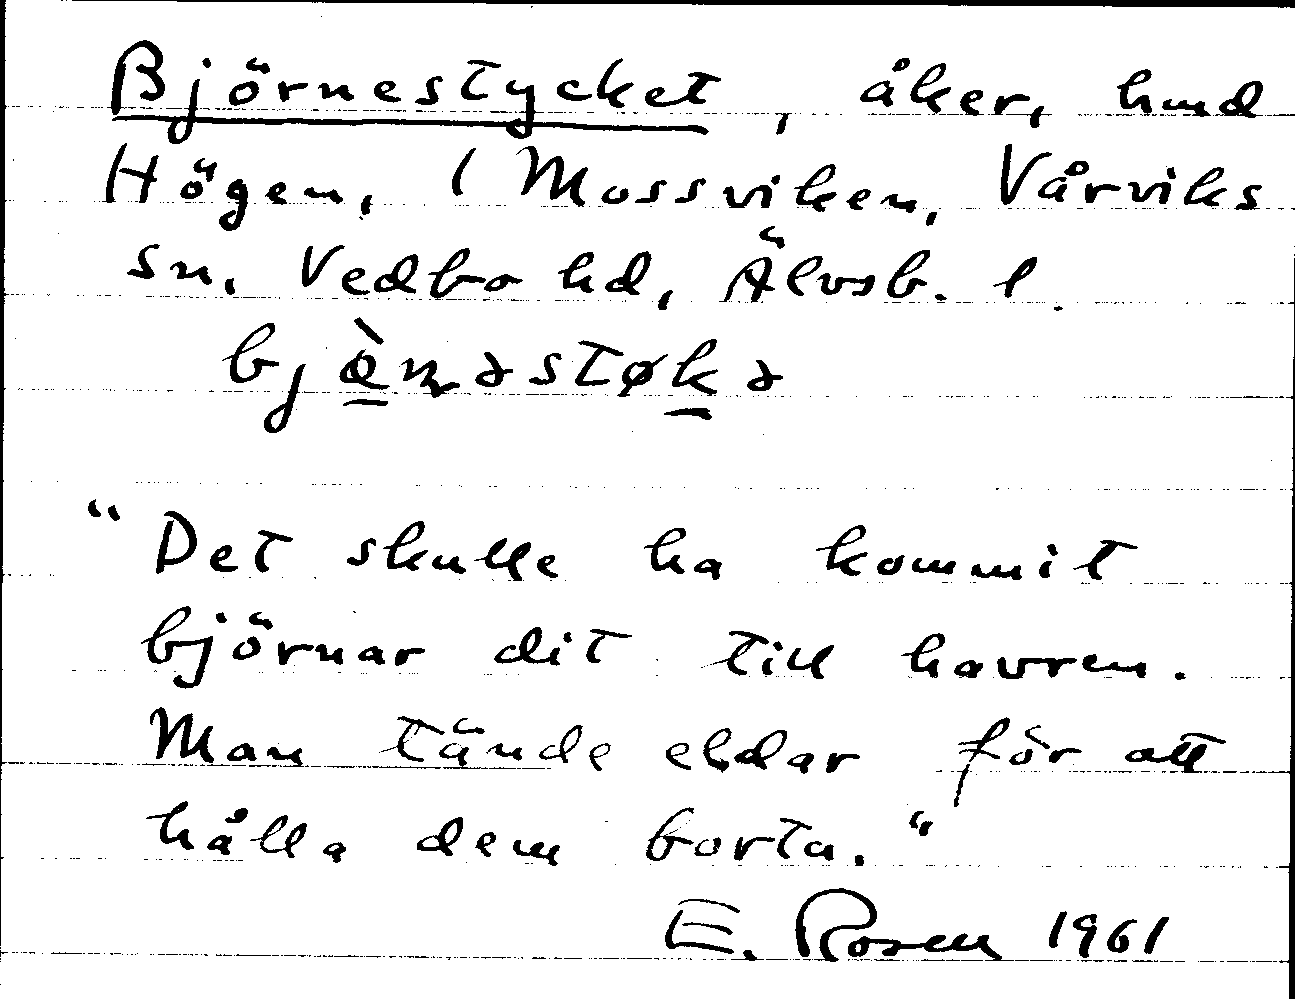 Björnestycket, åker, hmd
Högen, 1 Mossviken, Vårviks
sn, Vedbo hd, Älvsb. l.
"Det skulle ha kommit
björnar dit till havren.
Man tände eldar för att
hålla dem borta."
E. Rosen 1961